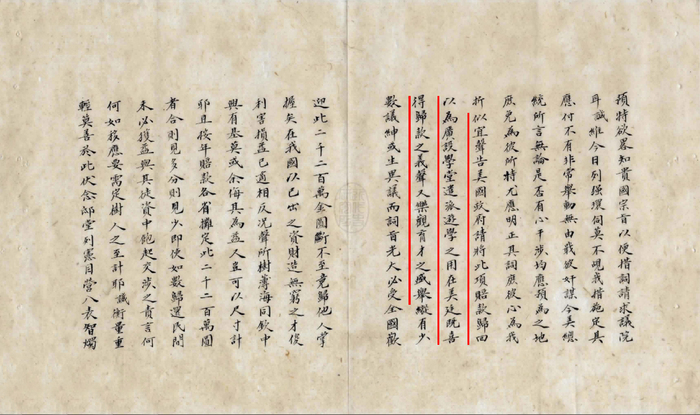 預特欲畧知貴國宗旨以便措詞請求議院
耳誠維今日列强環伺莫不覘我措施定其
應付不有非常舉動無由戢彼奸謀今美總
統所言無論是否有心干涉均應預為之地
庶免為彼所持尤應明正其詞應彼心為我
折似宜聲告美國政府請將此項賠款歸回
以為廣設學堂遣派遊學之用在美廷既喜
得歸款之義聲又樂觀育才之盛舉縱有少
數議紳或生異議而詞旨光大必受全國歡
迎此二千二百萬金圓斷不至竟歸他人掌
握矣在我國以已出之資財造無窮之才俊
利害損益已適相反況聲所樹薄海同欽中
興有基莫或余侮其為益人豈可以尺寸計
耶且按年賠款各省攤定此二千二百萬圓
者合則見多分則見少即使如數歸還民間
未必獲益與其徒資中飽起交涉之責言何
何如移應要需定樹人之至計耶誠衡量重
輕莫善於此伏念邸堂列憲目營八表智燭